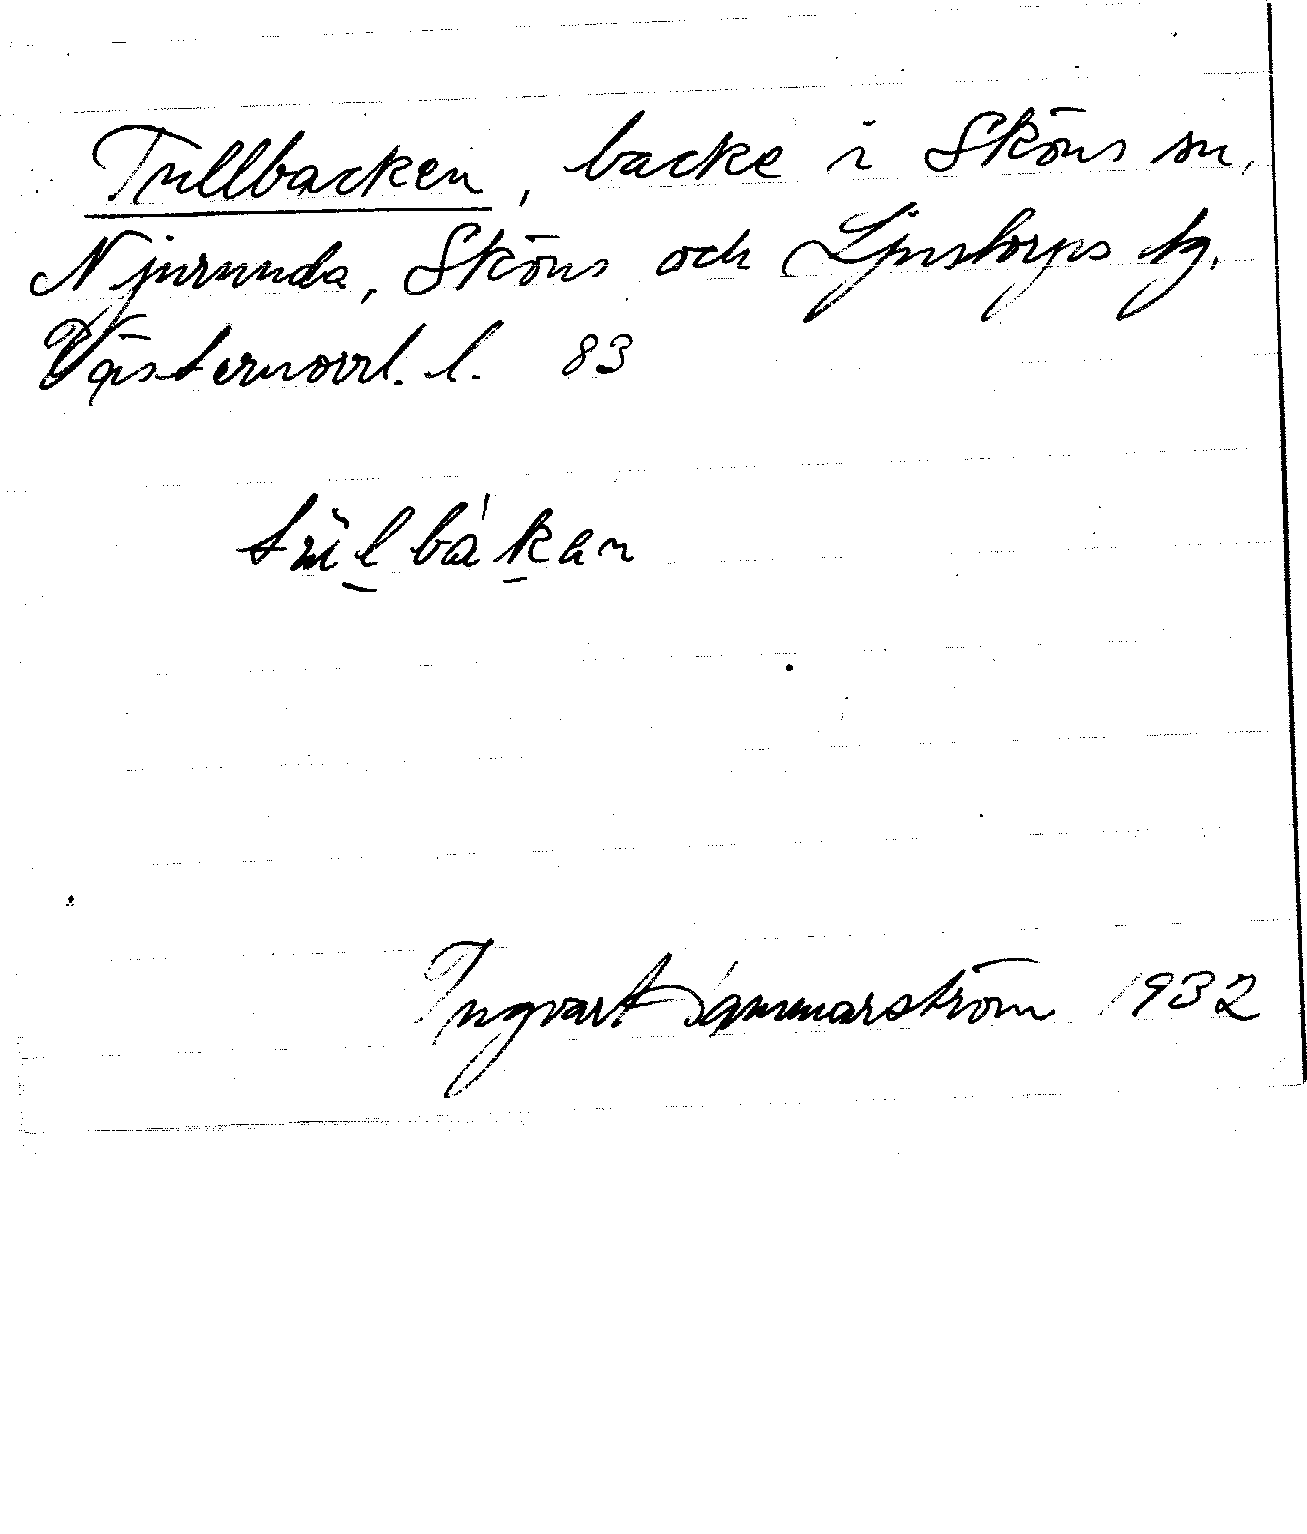 Tullbacken, backe i Sköns sn,
Njurunda, Sköns och Ljustorps tg.
Västernorrl. l. 83
Ingvart Jämmarström 1932